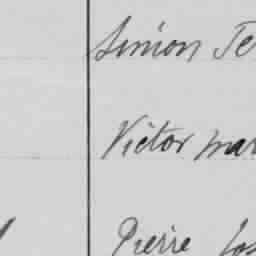 Simon Te
Victor mar
Pierre Jos